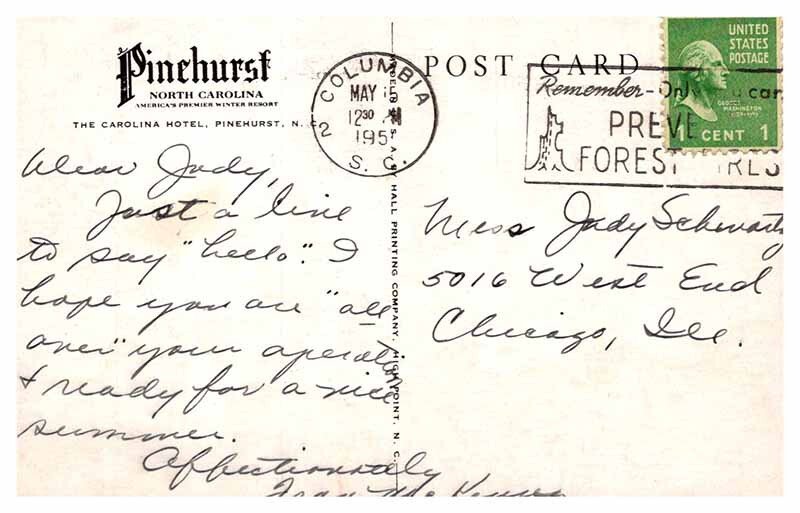 Pinehurst
NORTH CAROLINA
AMERICA'S PREMIER WINTER RESORT
THE CAROLINA HOTEL, PINEHURST, N. C.
Dear Judy,
Just a line
to say "hello". I
hope you are "all
over" your operation
& ready for a nice
summer.
Affectionately
Fran
HALL PRINTING COMPANY, HIGH POINT, N. C.
POST CARD
COLUMBIA
MAY
12 30
2
195
S. C.
Remember-Only you can
PREVE
FOREST FIRES
UNITED
STATES
POSTAGE
GEORGE
WASHINGTON
1 CENT 1
Miss Judy Schwartz
5016 West End
Chicago, Ill.